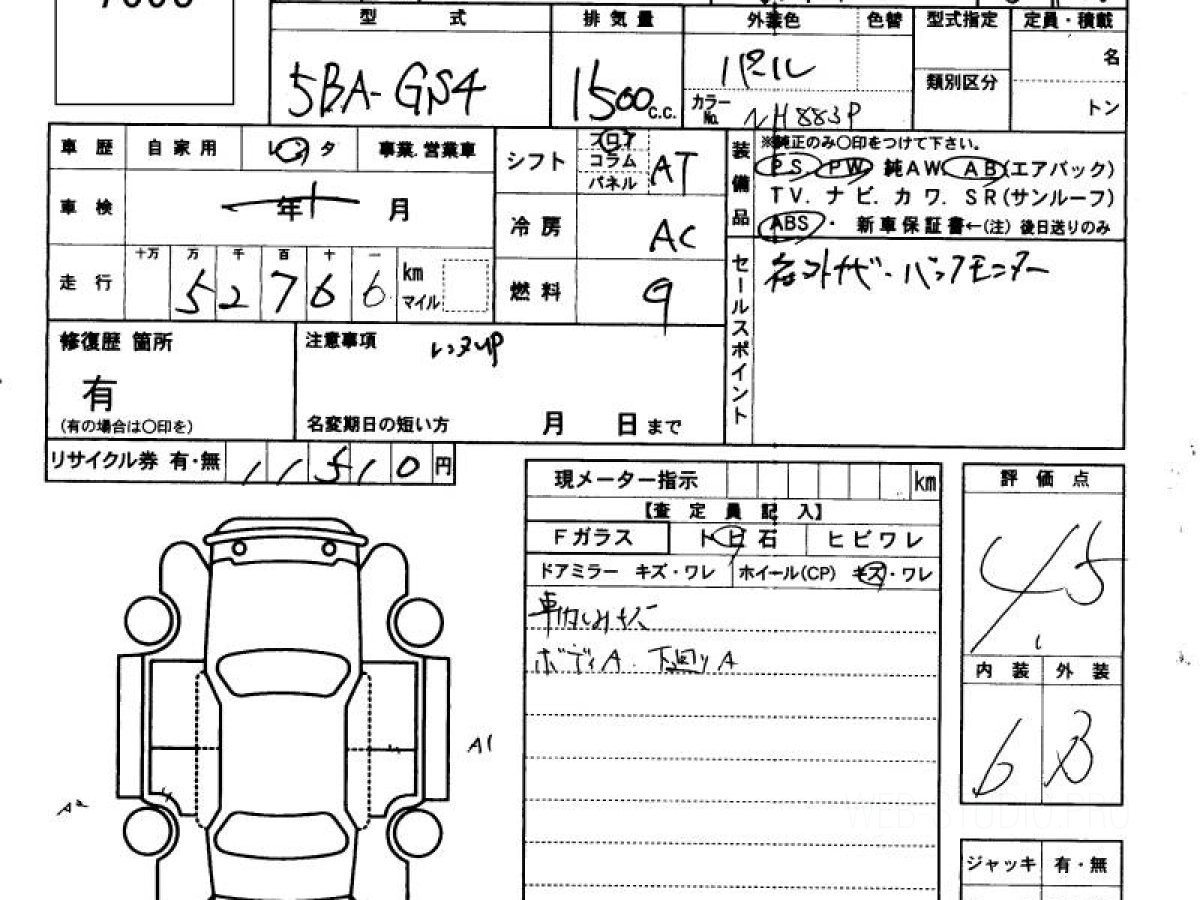 型 式 排気量 外装色 色替 型式指定 定員・積載
5BA-GS4 1500 c.c. パール 名
類別区分
カラーNo. NH883P トン
車歴 自家用 レンタ 事業.営業車
シフト フロア コラム パネル AT
装備品 ※純正のみ〇印をつけて下さい。
PS PW 純AW AB(エアバック)
TV. ナビ. カワ. SR(サンルーフ)
ABS・ 新車保証書←(注) 後日送りのみ
車検 年 月
冷房 AC
走行 十万 万 千 百 十 一 km マイル
5 2 7 6 6
燃料 9
セールスポイント
バックモニター
修復歴 箇所
有
(有の場合は〇印を)
注意事項 レンタUP
名変期日の短い方 月 日まで
リサイクル券 有・無 11510円
現メーター指示 km
【査定員記入】
Fガラス トビ石 ヒビワレ
ドアミラー キズ・ワレ ホイール(CP) キズ・ワレ
ボディA. 下回りA
評価点
4.5
内装 外装
B
A1
A2
ジャッキ 有・無
WEB-STUDIO.PRO